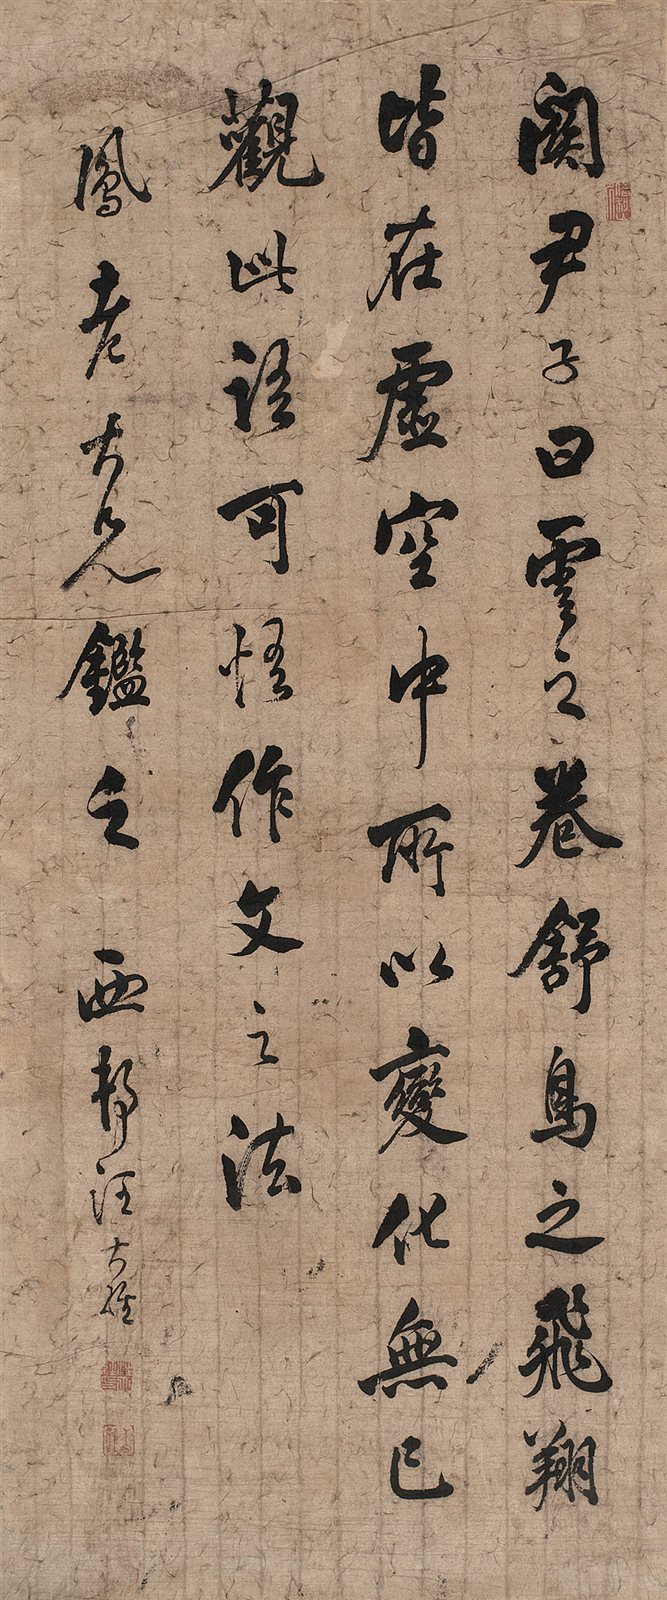 關尹子曰雲之卷舒鳥之飛翔
皆在虛空中所以變化無已
觀此語可悟作文之法
鳳老大兄鑑之 西邨汪大經